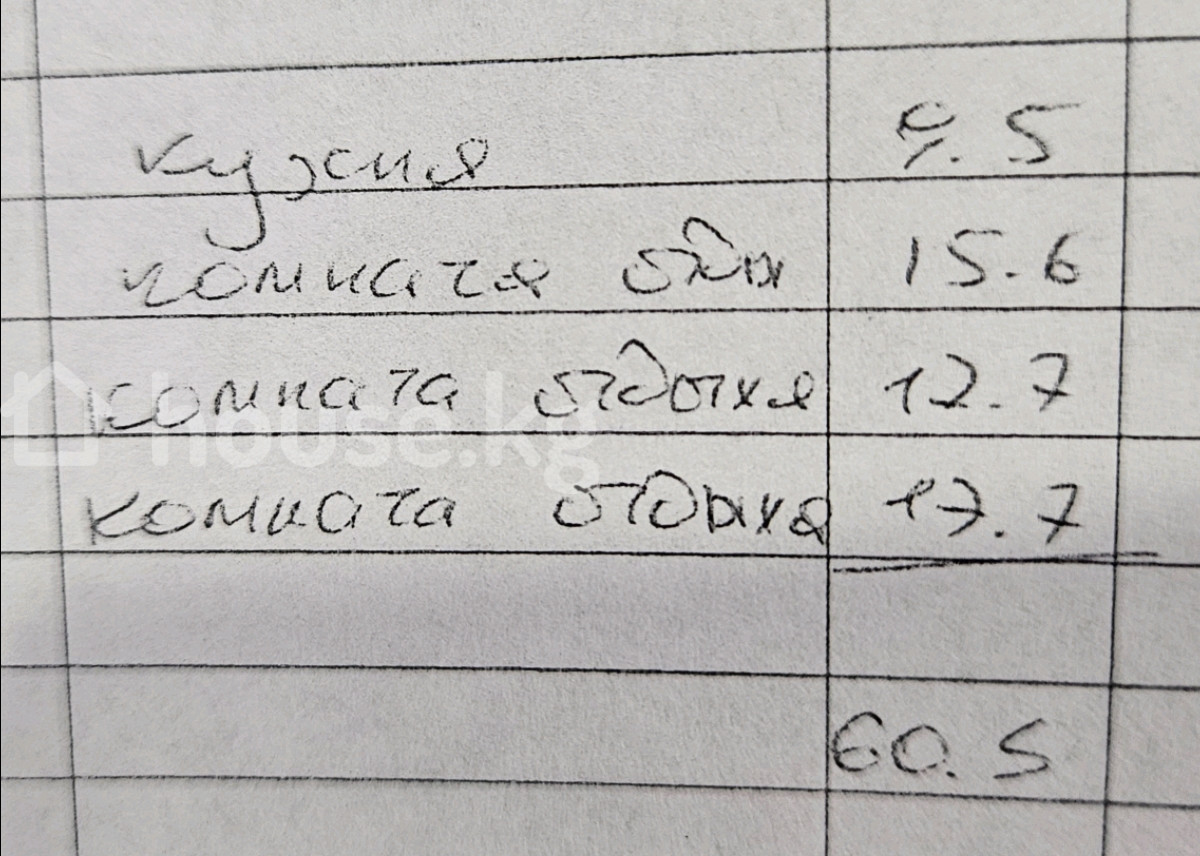 кухня 9.5
комната отды 15.6
комната отдыха 12.7
комната отдыха 17.7
60.5
house.kg